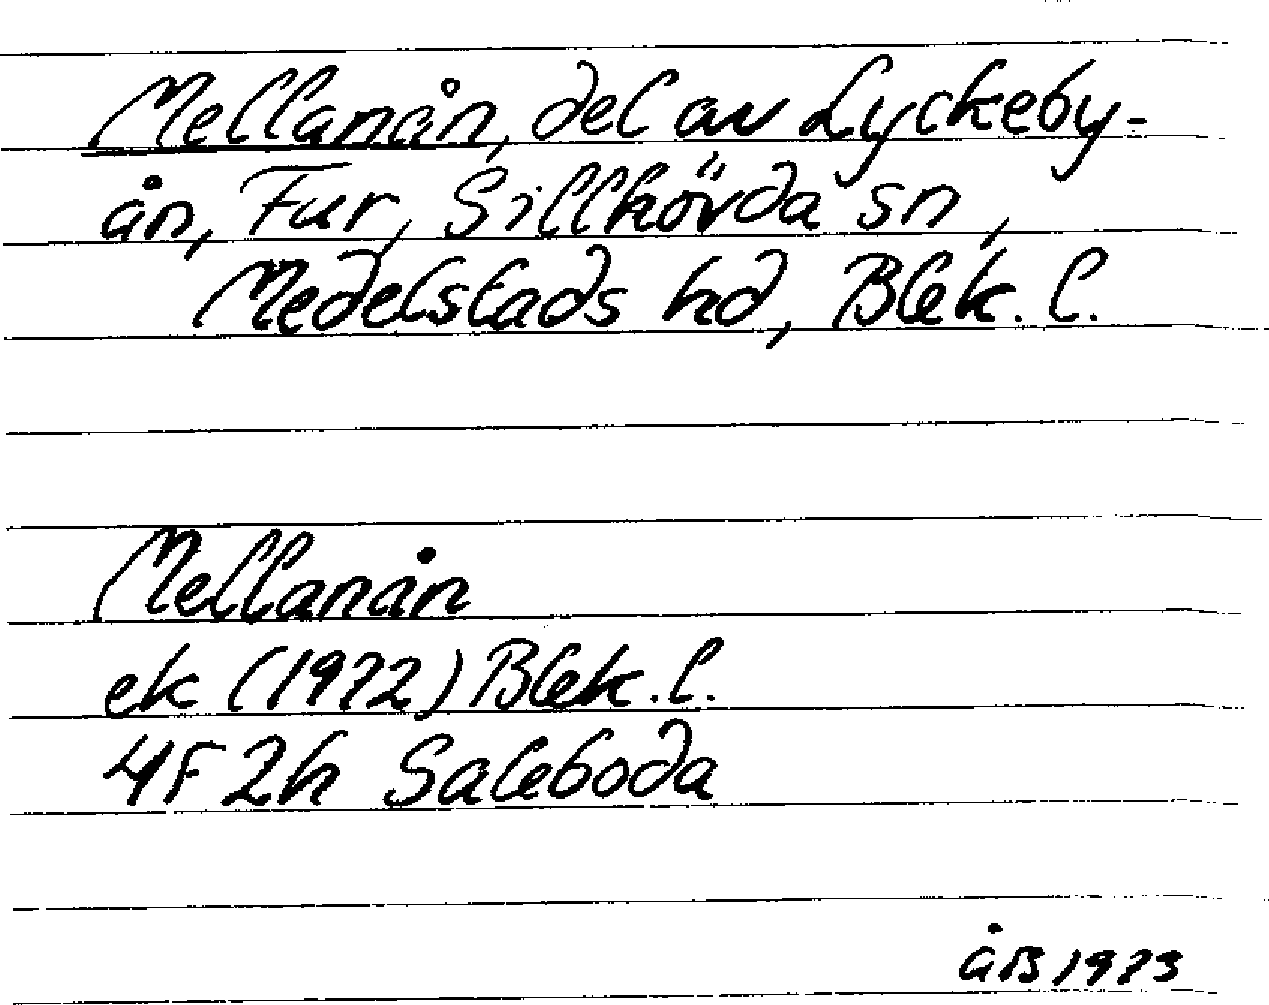 Mellanån, del av Lyckeby-
ån, Fur, Sillhövda sn,
Medelstads hd, Blek. l.
Mellanån
ek (1972) Blek. l.
4F 2h Saleboda
åB 1973